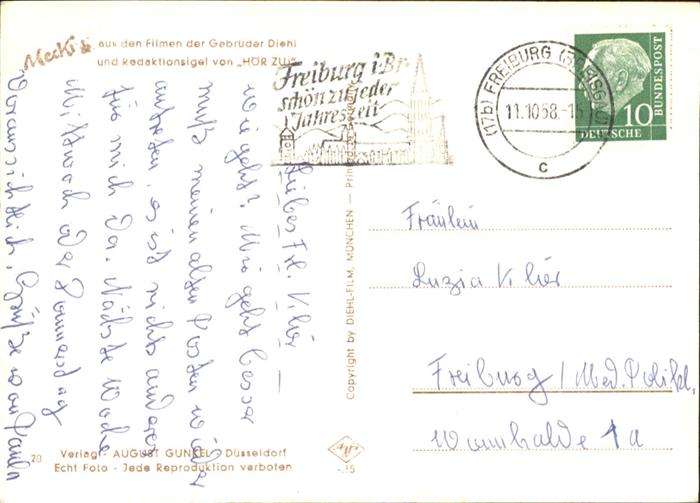 Mecki aus den Filmen der Gebrüder Diehl
und Redaktionsigel von „HÖR ZU!"
Freiburg i·Br
schön zu jeder
Jahreszeit
(17b) FREIBURG
11.10.58.-15
c
10
DEUTSCHE
BUNDESPOST
Liebes Frl. Klär —
wie geht's? Mir geht besser
muß meinen alten Posten wieder
antreten, es ist nichts anderes
für mich da. Nächste Woche
Mittwoch oder Donnerstag
voraussichtlich. Grüße von Paula
Copyright by DIEHL-FILM, MÜNCHEN — Prin
Fräulein
Luzia Klär
Freiburg / Med. Poliklı.
Wonnhalde 1a
20
Verlag AUGUST GUNKEL Düsseldorf
Echt Foto - Jede Reproduktion verboten
-.15